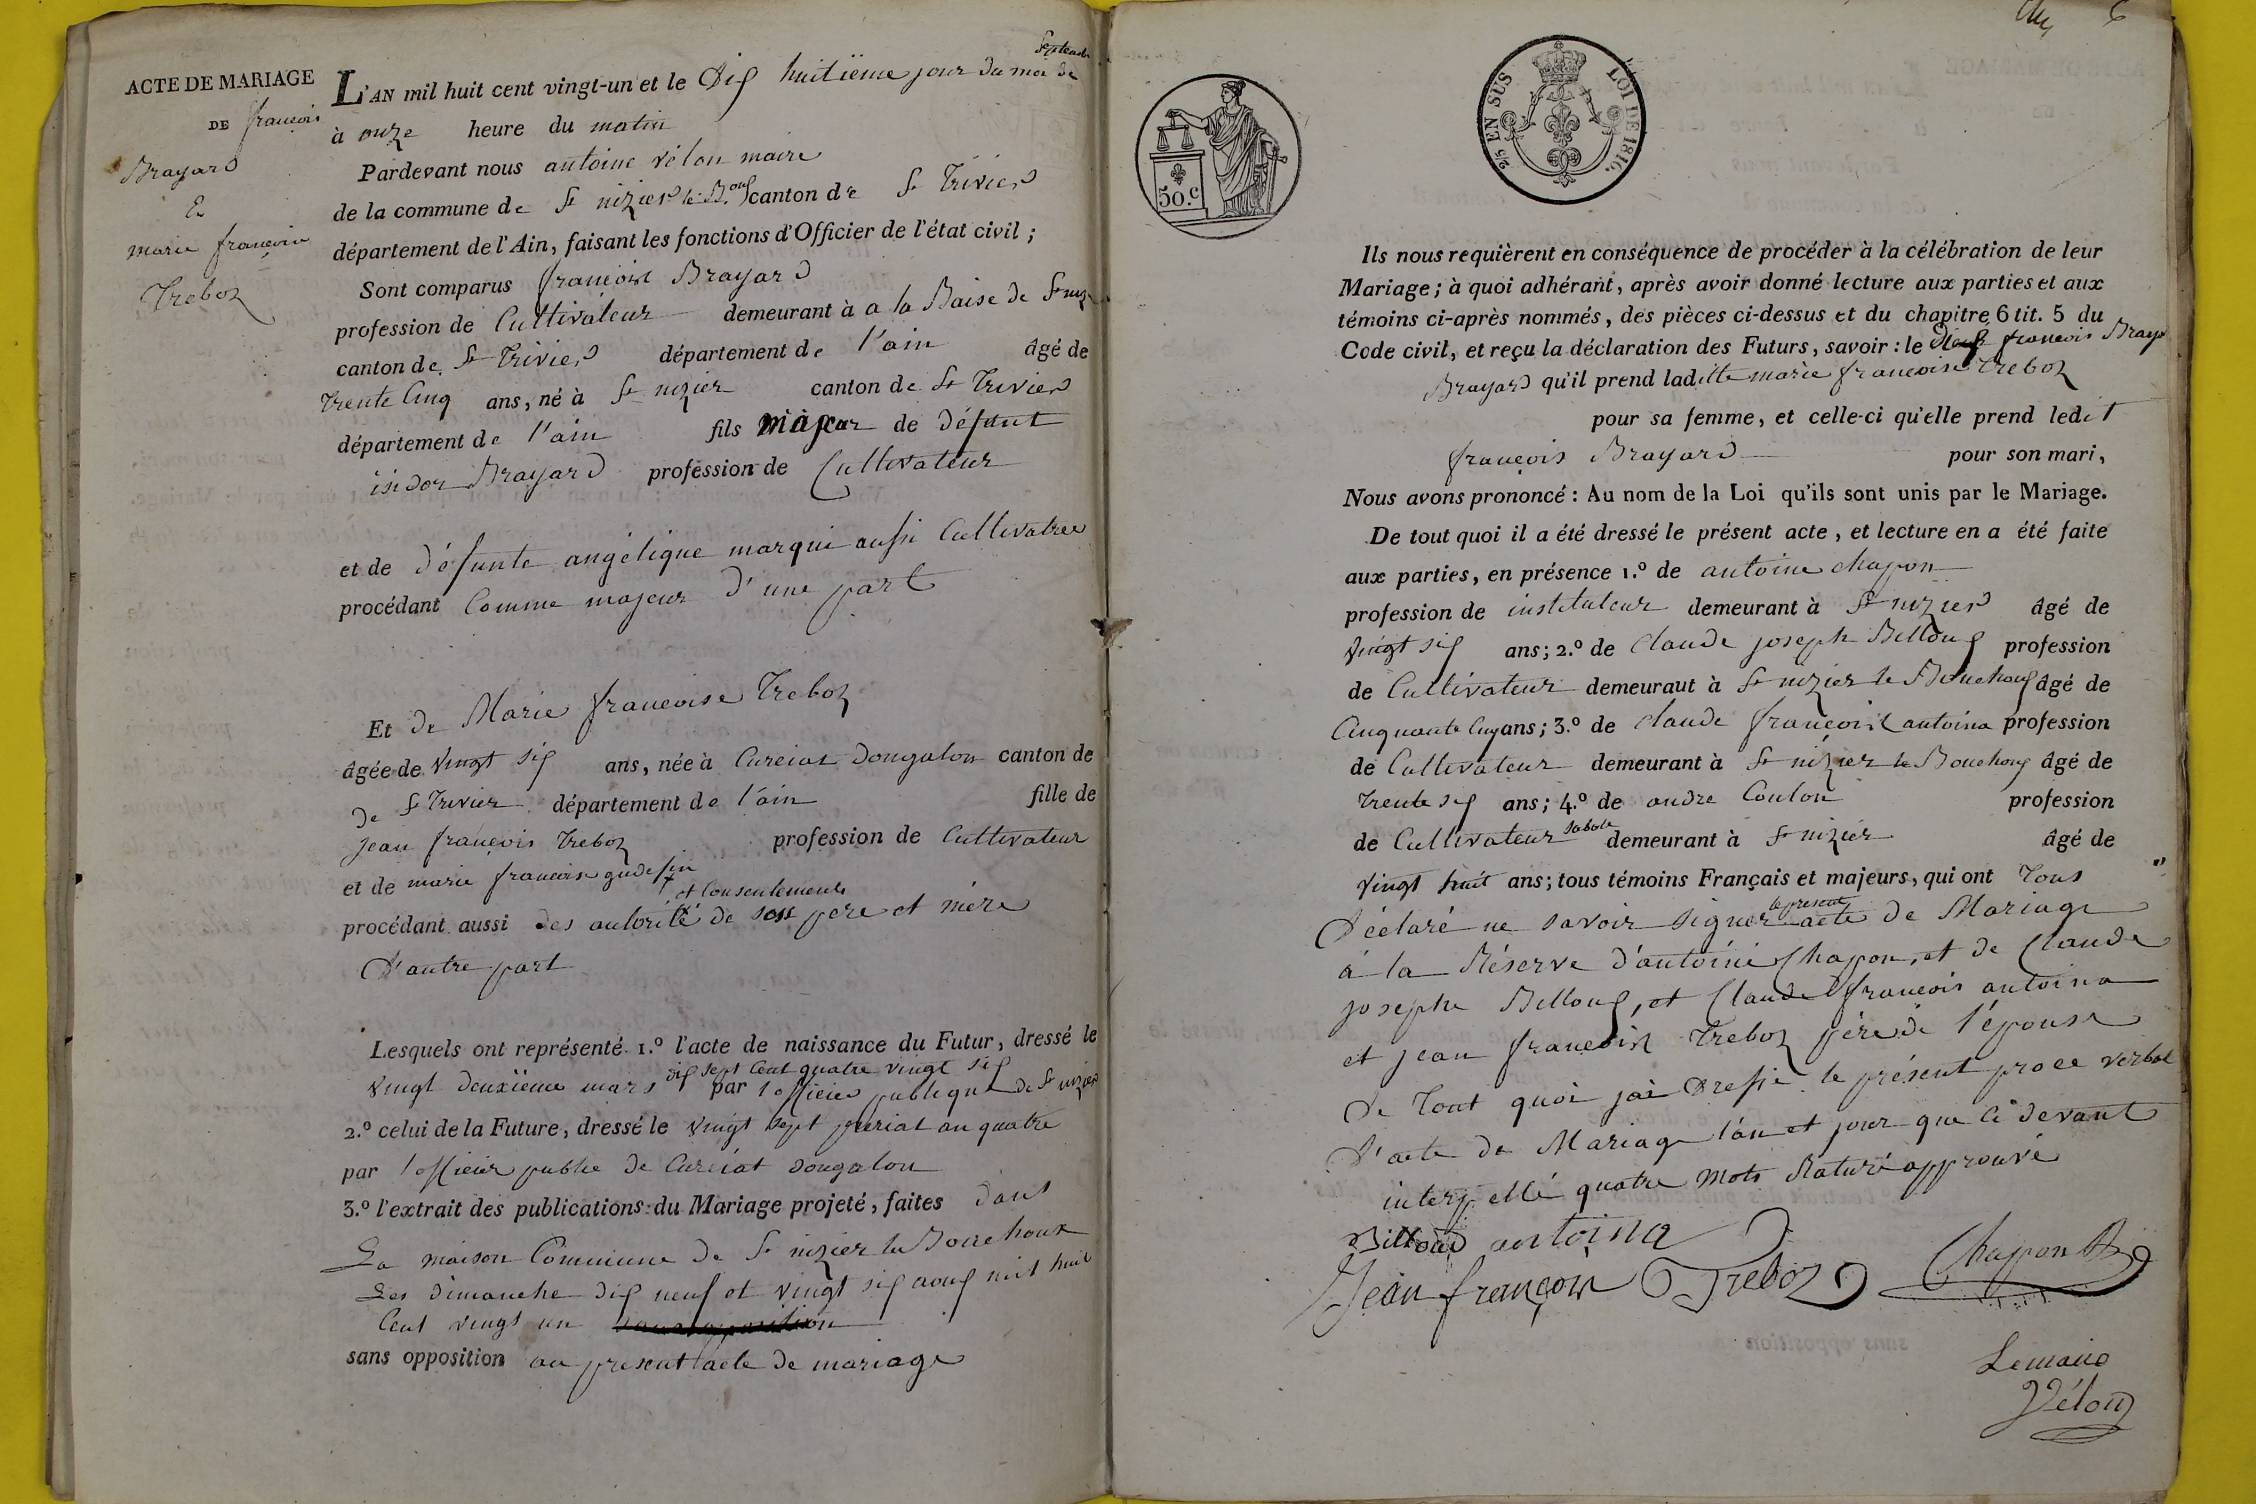 ACTE DE MARIAGE
DE françois
Brayard
E
marie françoise
Treboz
septembre
L'AN mil huit cent vingt-un et le Dix huitième jour du moi de
à onze heure du matin
Pardevant nous antoine vélon maire
de la commune de St nizier le Bouc canton de St Trivier
département de l'Ain, faisant les fonctions d'Officier de l'état civil ;
Sont comparus françois Brayard
profession de Cultivateur demeurant à a la Baise de St niz
canton de St Trivier département de l'ain âgé de
trente Cinq ans, né à St nizier canton de St Trivier
département de l'ain fils majeur de défunt
isidor Brayard profession de Cultivateur
et de défunte angélique marqui aussi Cultivatrice
procédant Comme majeur d'une part
Et de Marie françoise Treboz
âgée de vingt six ans, née à Curciat Dongalon canton de
de St Trivier département de l'ain fille de
jean françois Treboz profession de Cultivateur
et de marie francoise
et Consentement
procédant aussi des autorité de son pere et mère
D'autre part
Lesquels ont représenté 1.º l'acte de naissance du Futur, dressé le
dix sept Cent quatre vingt six
vingt deuxième mars par l'officier publique de St nizier
2.º celui de la Future, dressé le vingt sept prerial an quatre
par l'officier publie de Curciat dongalon
3.º l'extrait des publications du Mariage projeté, faites dans
La maison Commune de St nizier le Bouchoux
Les dimanche dix neuf et vingt six aout mil huit
Cent vingt un sans opposition
sans opposition au present acte de mariage
6
50.c
2/5 EN SUS LOI DE 1816.
Ils nous requièrent en conséquence de procéder à la célébration de leur
Mariage ; à quoi adhérant, après avoir donné lecture aux parties et aux
témoins ci-après nommés, des pièces ci-dessus et du chapitre 6 tit. 5 du
Code civil, et reçu la déclaration des Futurs, savoir : le dit françois Braya
Brayard qu'il prend laditte marie françoise Treboz
pour sa femme, et celle-ci qu'elle prend ledit
françois Brayard pour son mari,
Nous avons prononcé : Au nom de la Loi qu'ils sont unis par le Mariage.
De tout quoi il a été dressé le présent acte, et lecture en a été faite
aux parties, en présence 1.º de antoine chapon
profession de instituteur demeurant à St nizier âgé de
vingt six ans ; 2.º de Claude joseph Billoux profession
de Cultivateur demeuraut à St nizier le Bouchoux âgé de
Cinquante Cinq ans ; 3.º de claude françois antoina profession
de Cultivateur demeurant à St nizier le Bouchoux âgé de
trente six ans ; 4.º de andre Coulon profession
de Cultivateur sabote demeurant à St nizier âgé de
vingt huit ans ; tous témoins Français et majeurs, qui ont Tous
le present
Déclaré ne savoir signer acte de Mariage
à la Réserve d'antoine Chapon, et de Claude
josephe Billoux, et Claude françois antoina
et jean françois Treboz père de l'épouse
De tout quoi jai Dressé le présent proce verbal
D'acte de Mariage l'an et jour que Ci devant
interpellé quatre mots Raturé approuvé
Billoud antoina
Jean françois Treboz Chapon
Le maire
Vélon